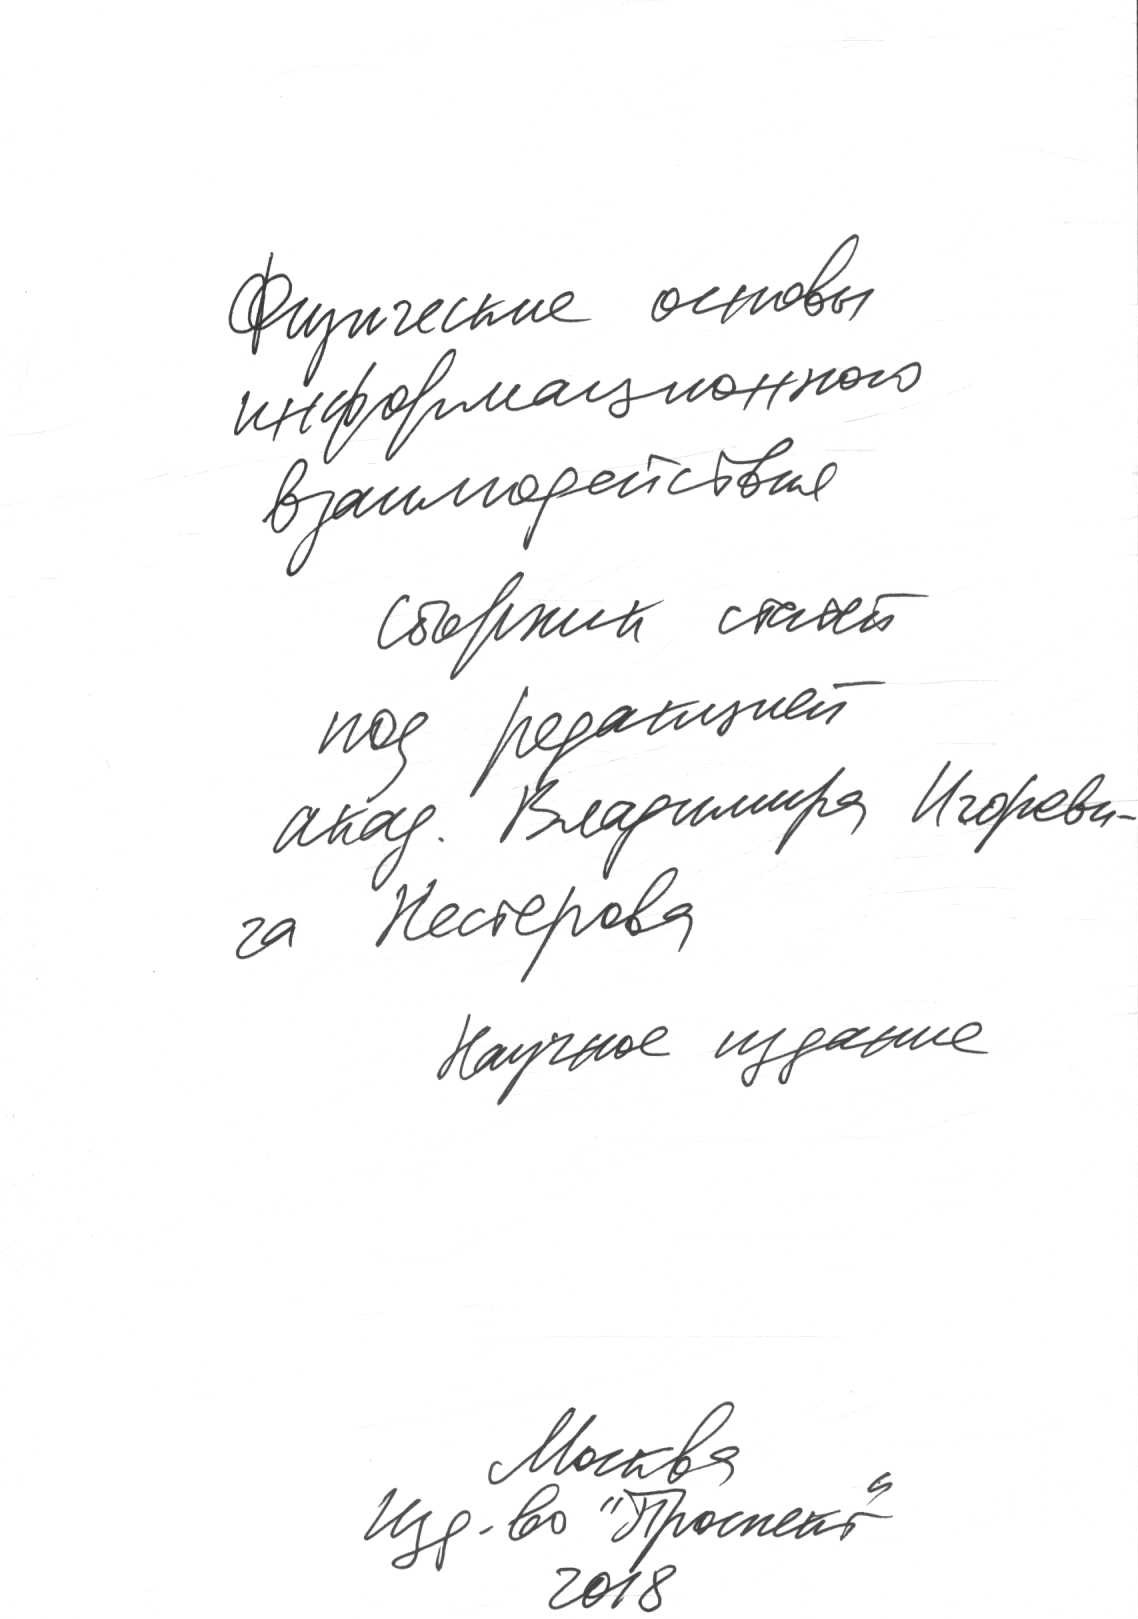 Физические основы
информационного
взаимодействия
Сборник статей
под редакцией
акад. Владимира Игореви-
ча Нестерова
Научное издание
Москва
Изд-во "Проспект"
2018